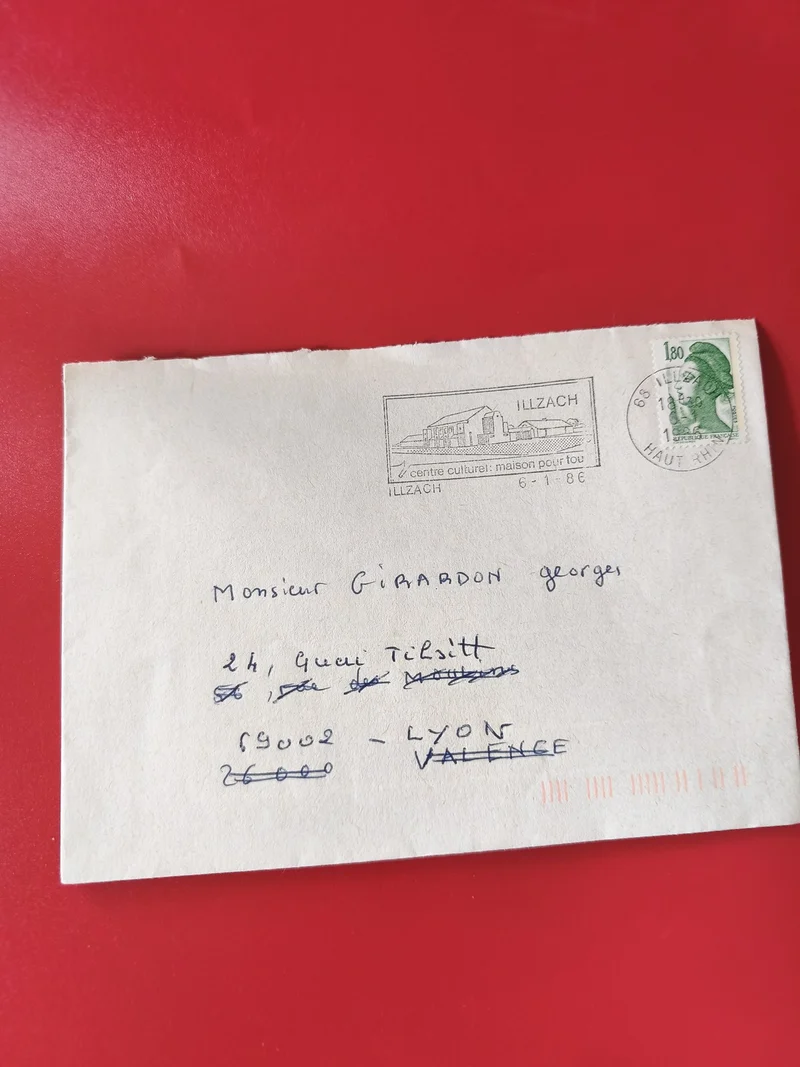 1,80
ILLZACH
centre culturel: maison pour tou
ILLZACH 6-1-86
68 ILLZACH
18H
HAUT RHIN
REPUBLIQUE FRANÇAISE
Monsieur GIRARDON georges
24, Quai Tilsitt
56, rue des
69002 - LYON
26000 VALENCE